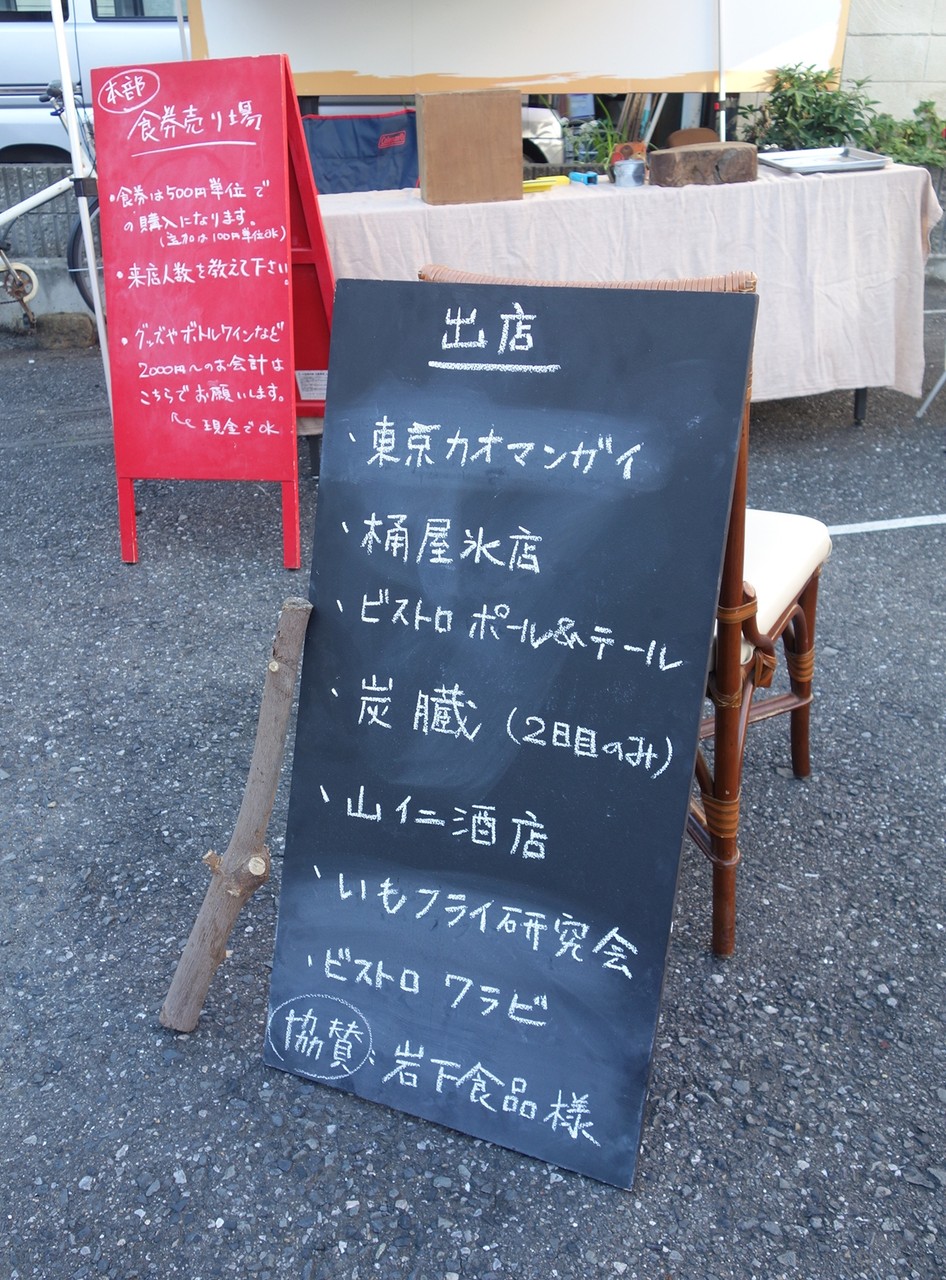 本部
食券売り場
・食券は500円単位で
の購入になります。
(追加は100円単位OK)
・来店人数を教えて下さい。
・グッズやボトルワインなど
2000円〜のお会計は
こちらでお願いします。
現金でOK
Coleman
出店
、東京カオマンガイ
、桶屋氷店
、ビストロ ポール&テール
、炭臓(2日目のみ)
、山仁酒店
、いもフライ研究会
、ビストロ ワラビ
協賛:岩下食品様